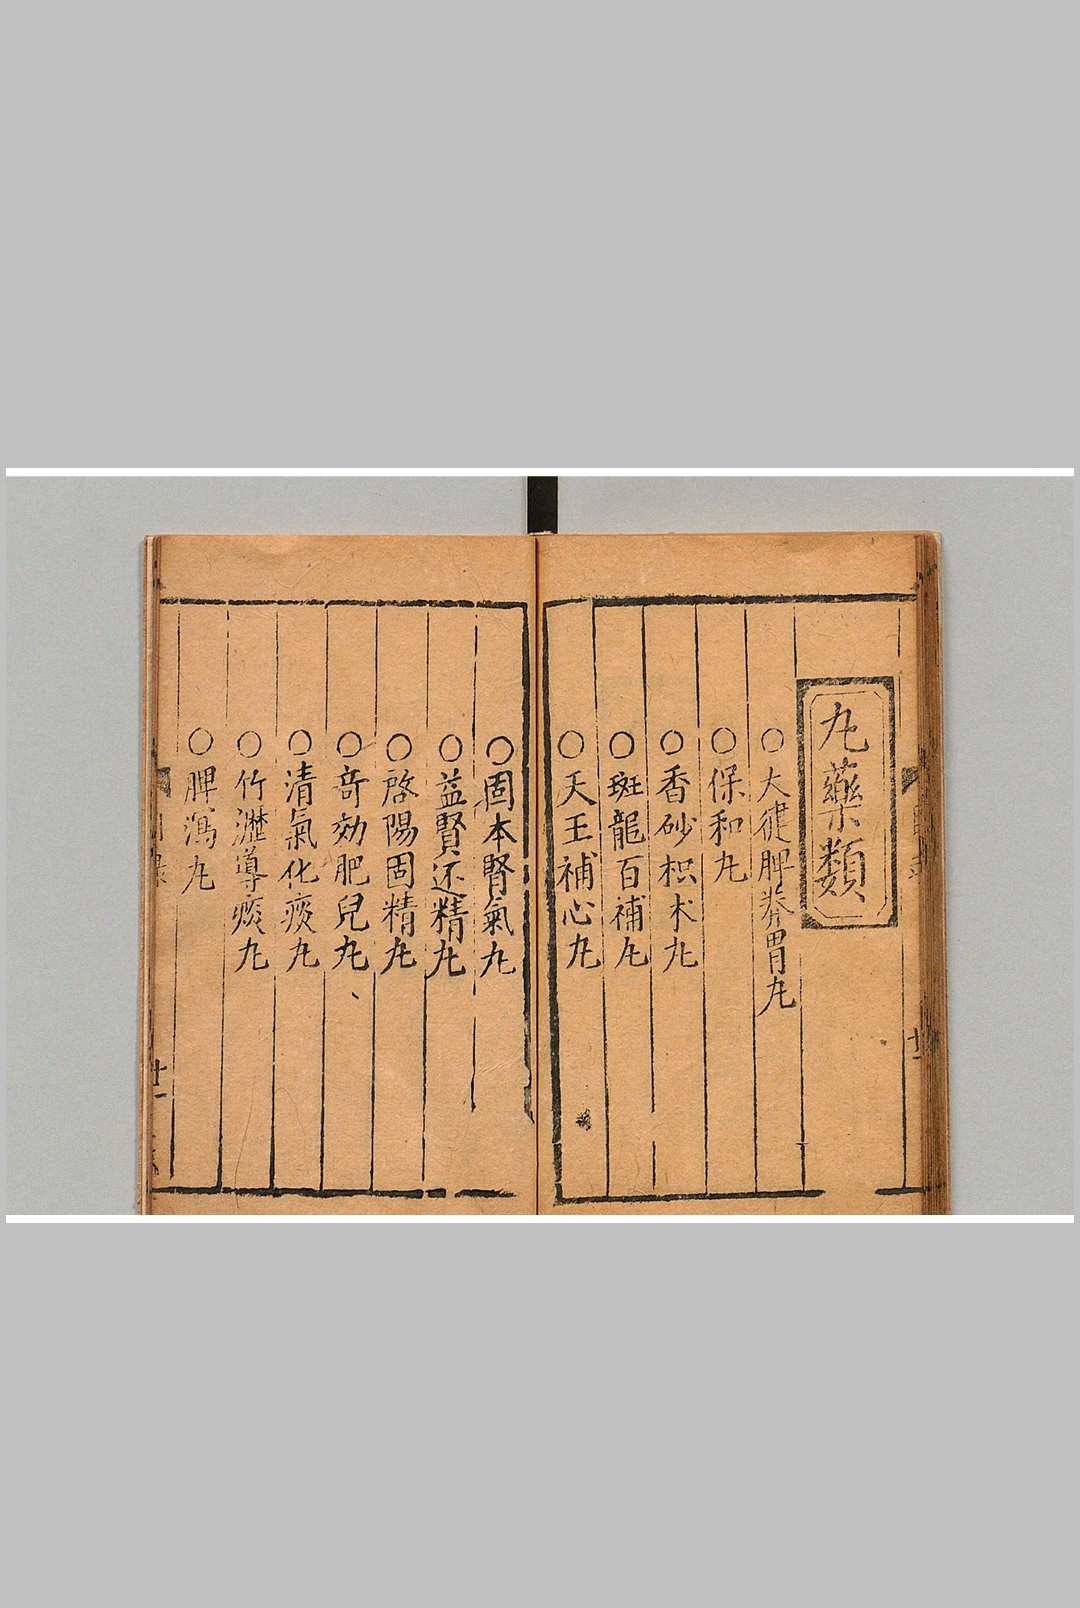 丸藥類
○大健脾養胃丸
○保和丸
○香砂枳朮丸
○斑龍百補丸
○天王補心丸
○固本腎氣丸
○益腎还精丸
○啓陽固精丸
○奇効肥兒丸
○清氣化痰丸
○竹瀝導痰丸
○脾瀉丸